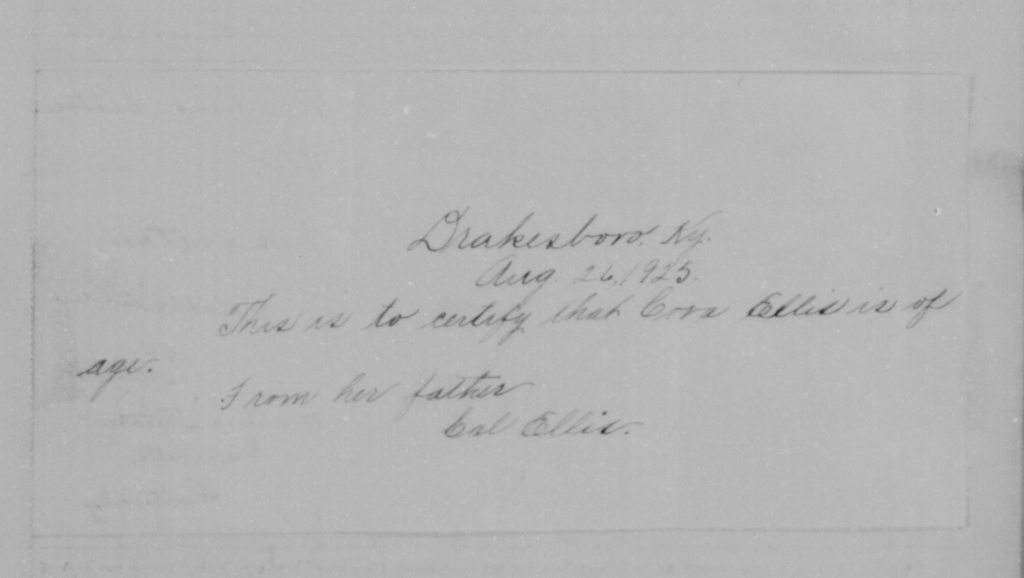 Drakesboro. Ky.
Aug. 26, 1925.
This is to certify that Cora Ellis is of
age.
From her father
Cal Ellis.